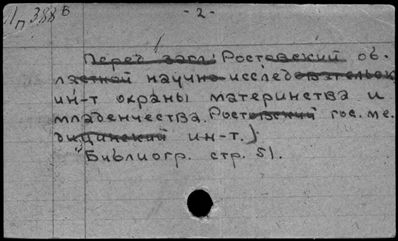 Лп 388в
- 2 -
Перед загл: Ростовский об-
ластной научно-исследовательск
ин-т охраны материнства и
младенчества. Ростовский гос. ме-
дицинский ин-т.)
Библиогр. стр. 51.